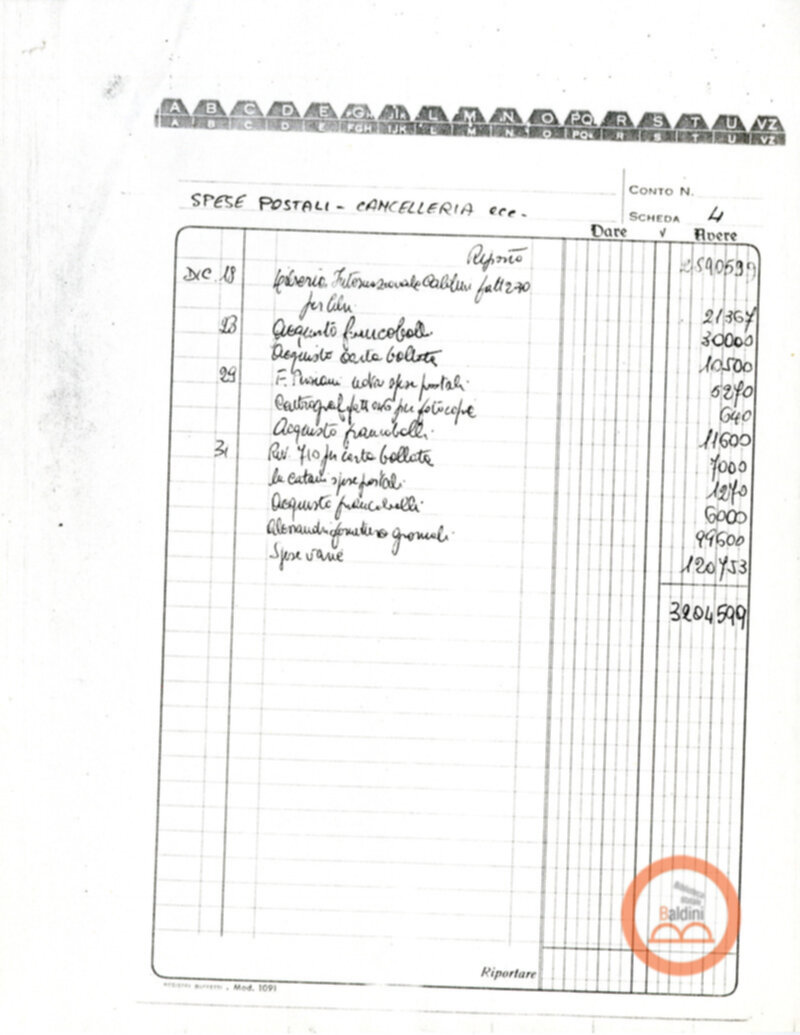 A B C D E FGH IJK L M N O PQ R S T U VZ
A B C D E FGH IJK L M N O PQ R S T U VZ
CONTO N.
SPESE POSTALI - CANCELLERIA ecc.
SCHEDA 4
Dare √ Avere
Riporto 2590599
DIC. 18 Libreria Internazionale fatt 270
per libri 21367
23 Acquisto francobolli 30000
Acquisto carta bollata 10500
29 F. nota spese postali 5270
fatt per fotocopie 640
Acquisto francobolli 11600
31 Riv. 710 per carta bollata 7000
spese postali 1270
Acquisto francobolli 6000
Alessandri fornitura giornali 99600
Spese varie 120753
3204599
Biblioteca
statale
Baldini
Riportare
REGISTRI BUFFETTI . Mod. 1091